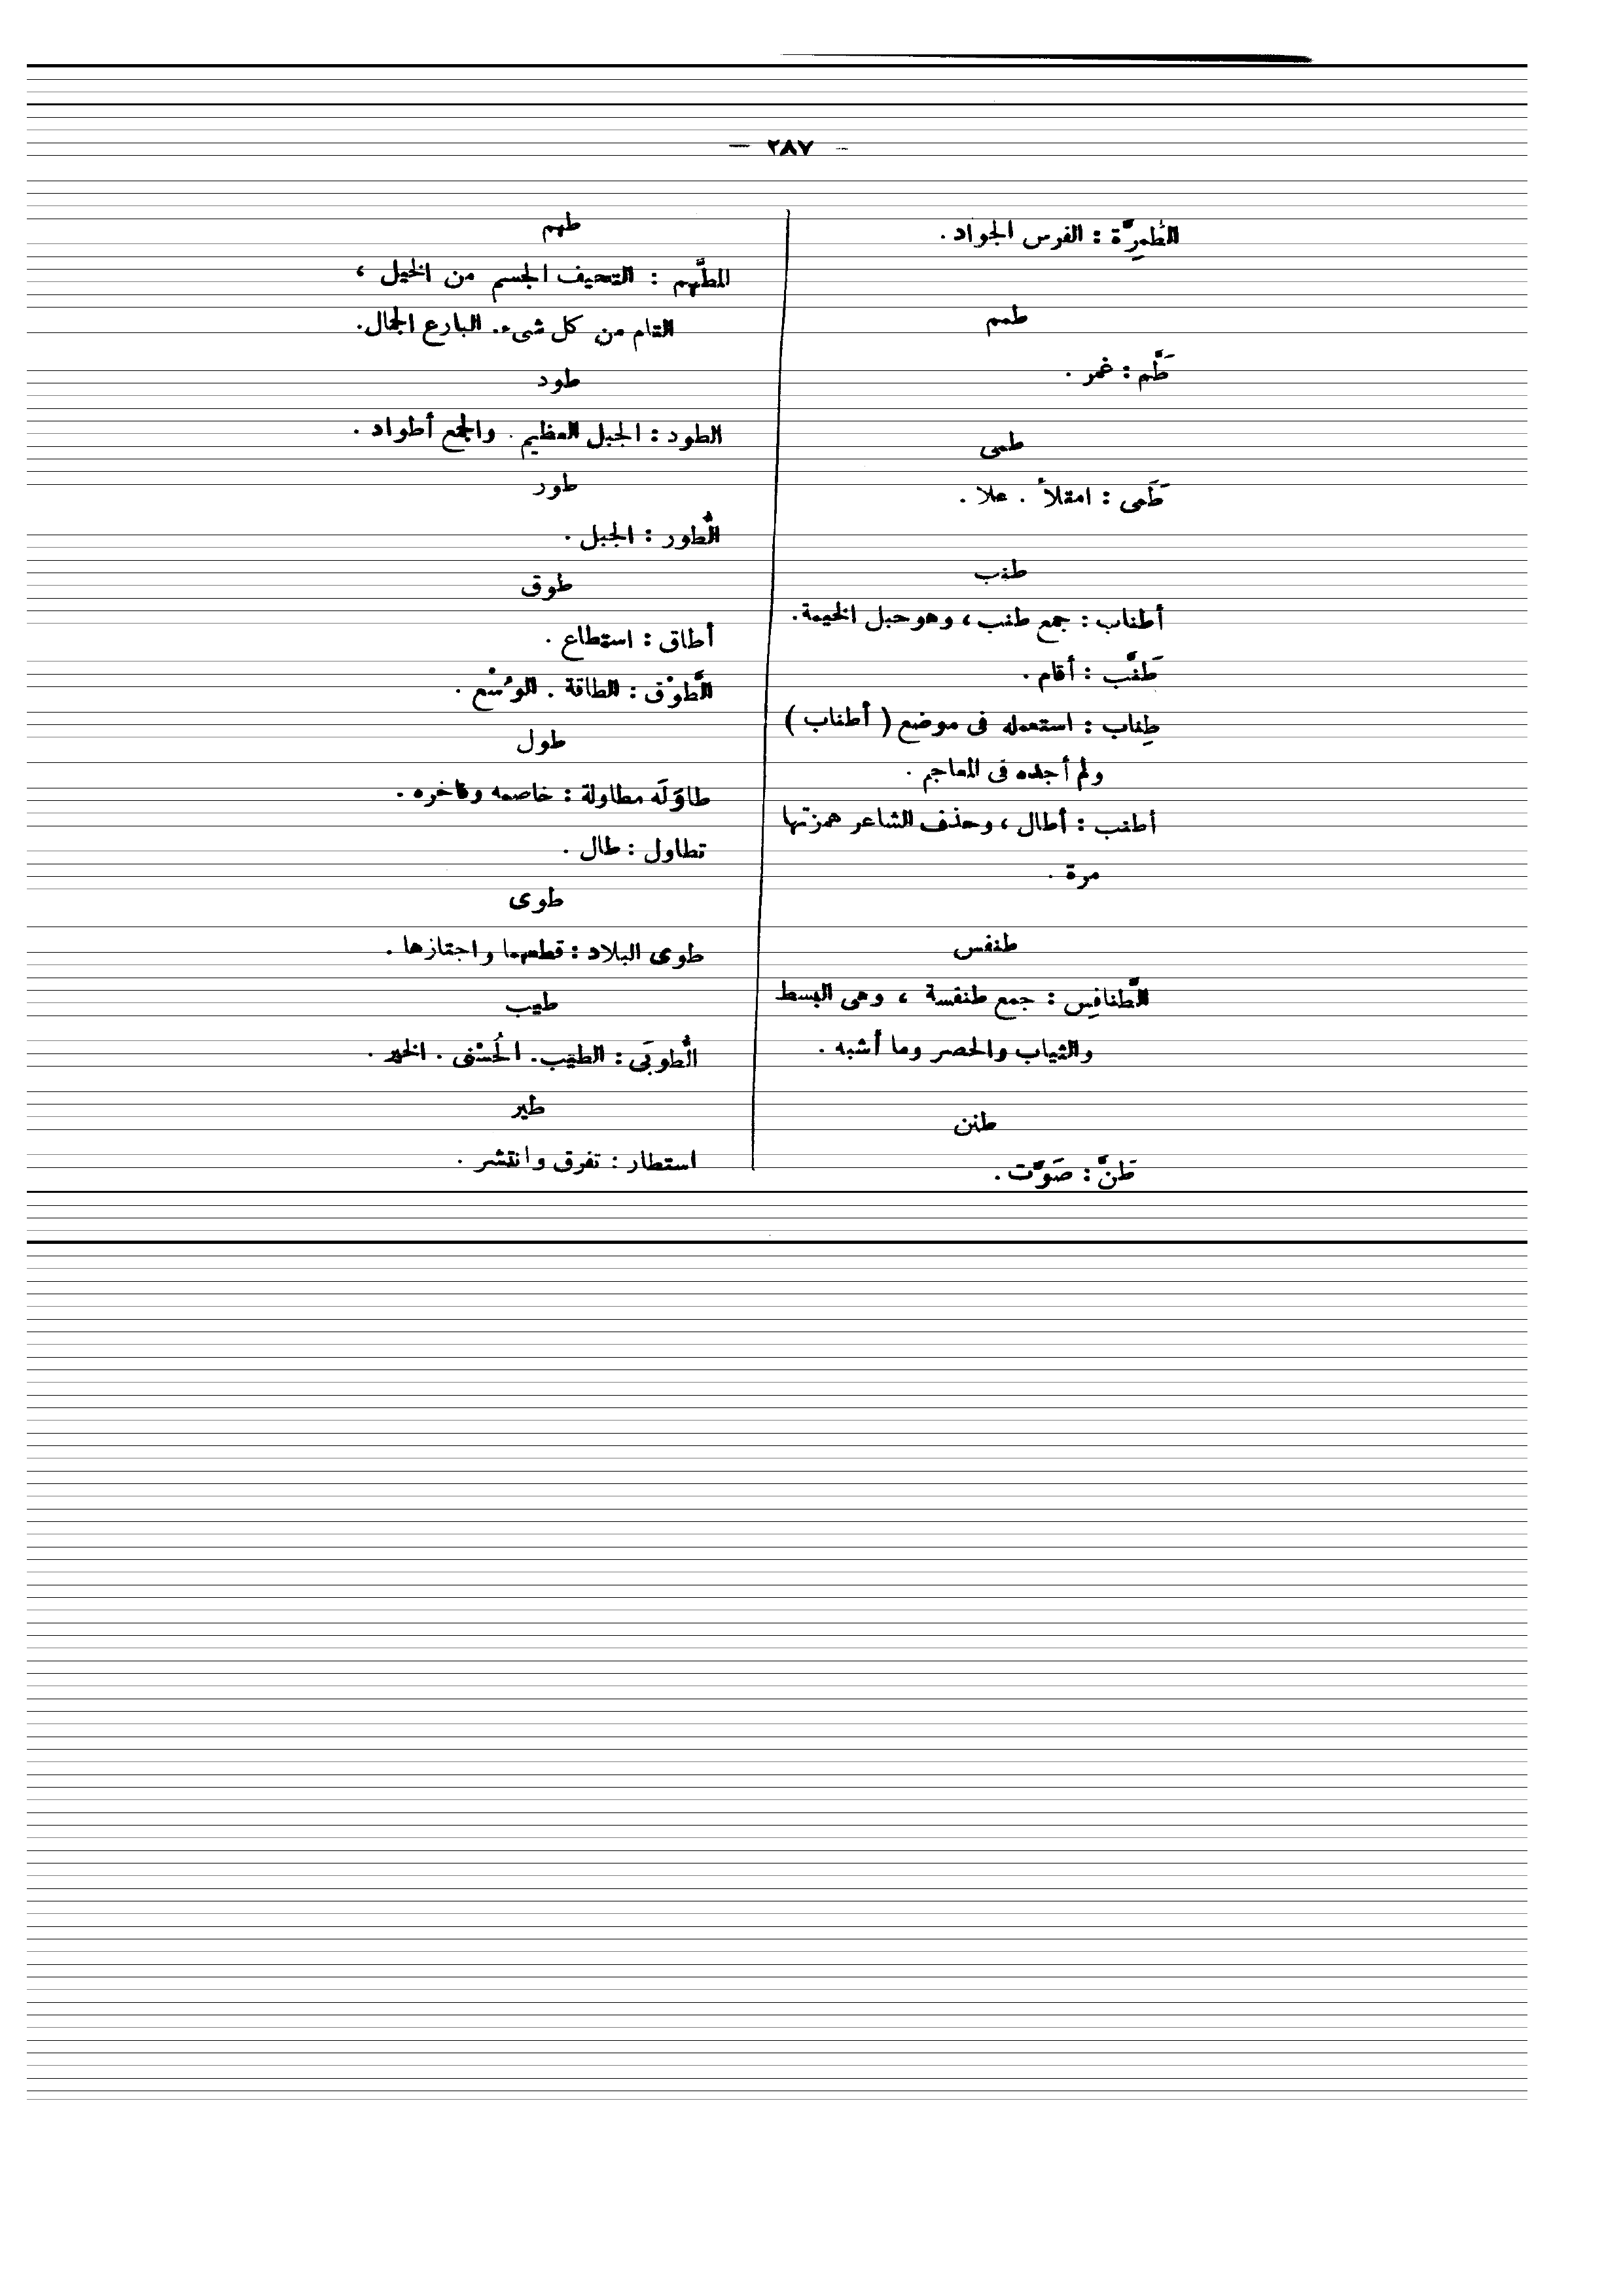 — ٢٨٧ —
الطِّمِرَّة : الفرس الجواد .
طمم
طَمَّ : غمر .
طمى
طَمَى : امتلأ . علا .
طنب
أطناب : جمع طنب ، وهو حبل الخيمة .
طَنَّب : أقام .
طِناب : استعمله فى موضع ( أطناب )
ولم أجده فى المعاجم .
أطنب : أطال ، وحذف الشاعر همزتها
مرة .
طنفس
الطَّنافِس : جمع طنفسة ، وهى البسط
والثياب والحصر وما أشبه .
طنن
طَنَّ : صَوَّت .
طهم
المطَّهم : النحيف الجسم من الخيل ،
التام من كل شىء . البارع الجمال .
طود
الطود : الجبل العظيم . والجمع أطواد .
طور
الطُّور : الجبل .
طوق
أطاق : استطاع .
الطَّوْق : الطاقة . الوُسْع .
طول
طاوَلَه مطاولة : خاصمه وفاخره .
تطاول : طال .
طوى
طوى البلاد : قطعها واجتازها .
طيب
الطُّوبَى : الطيب . الحُسْنى . الخير .
طير
استطار : تفرق وانتشر .